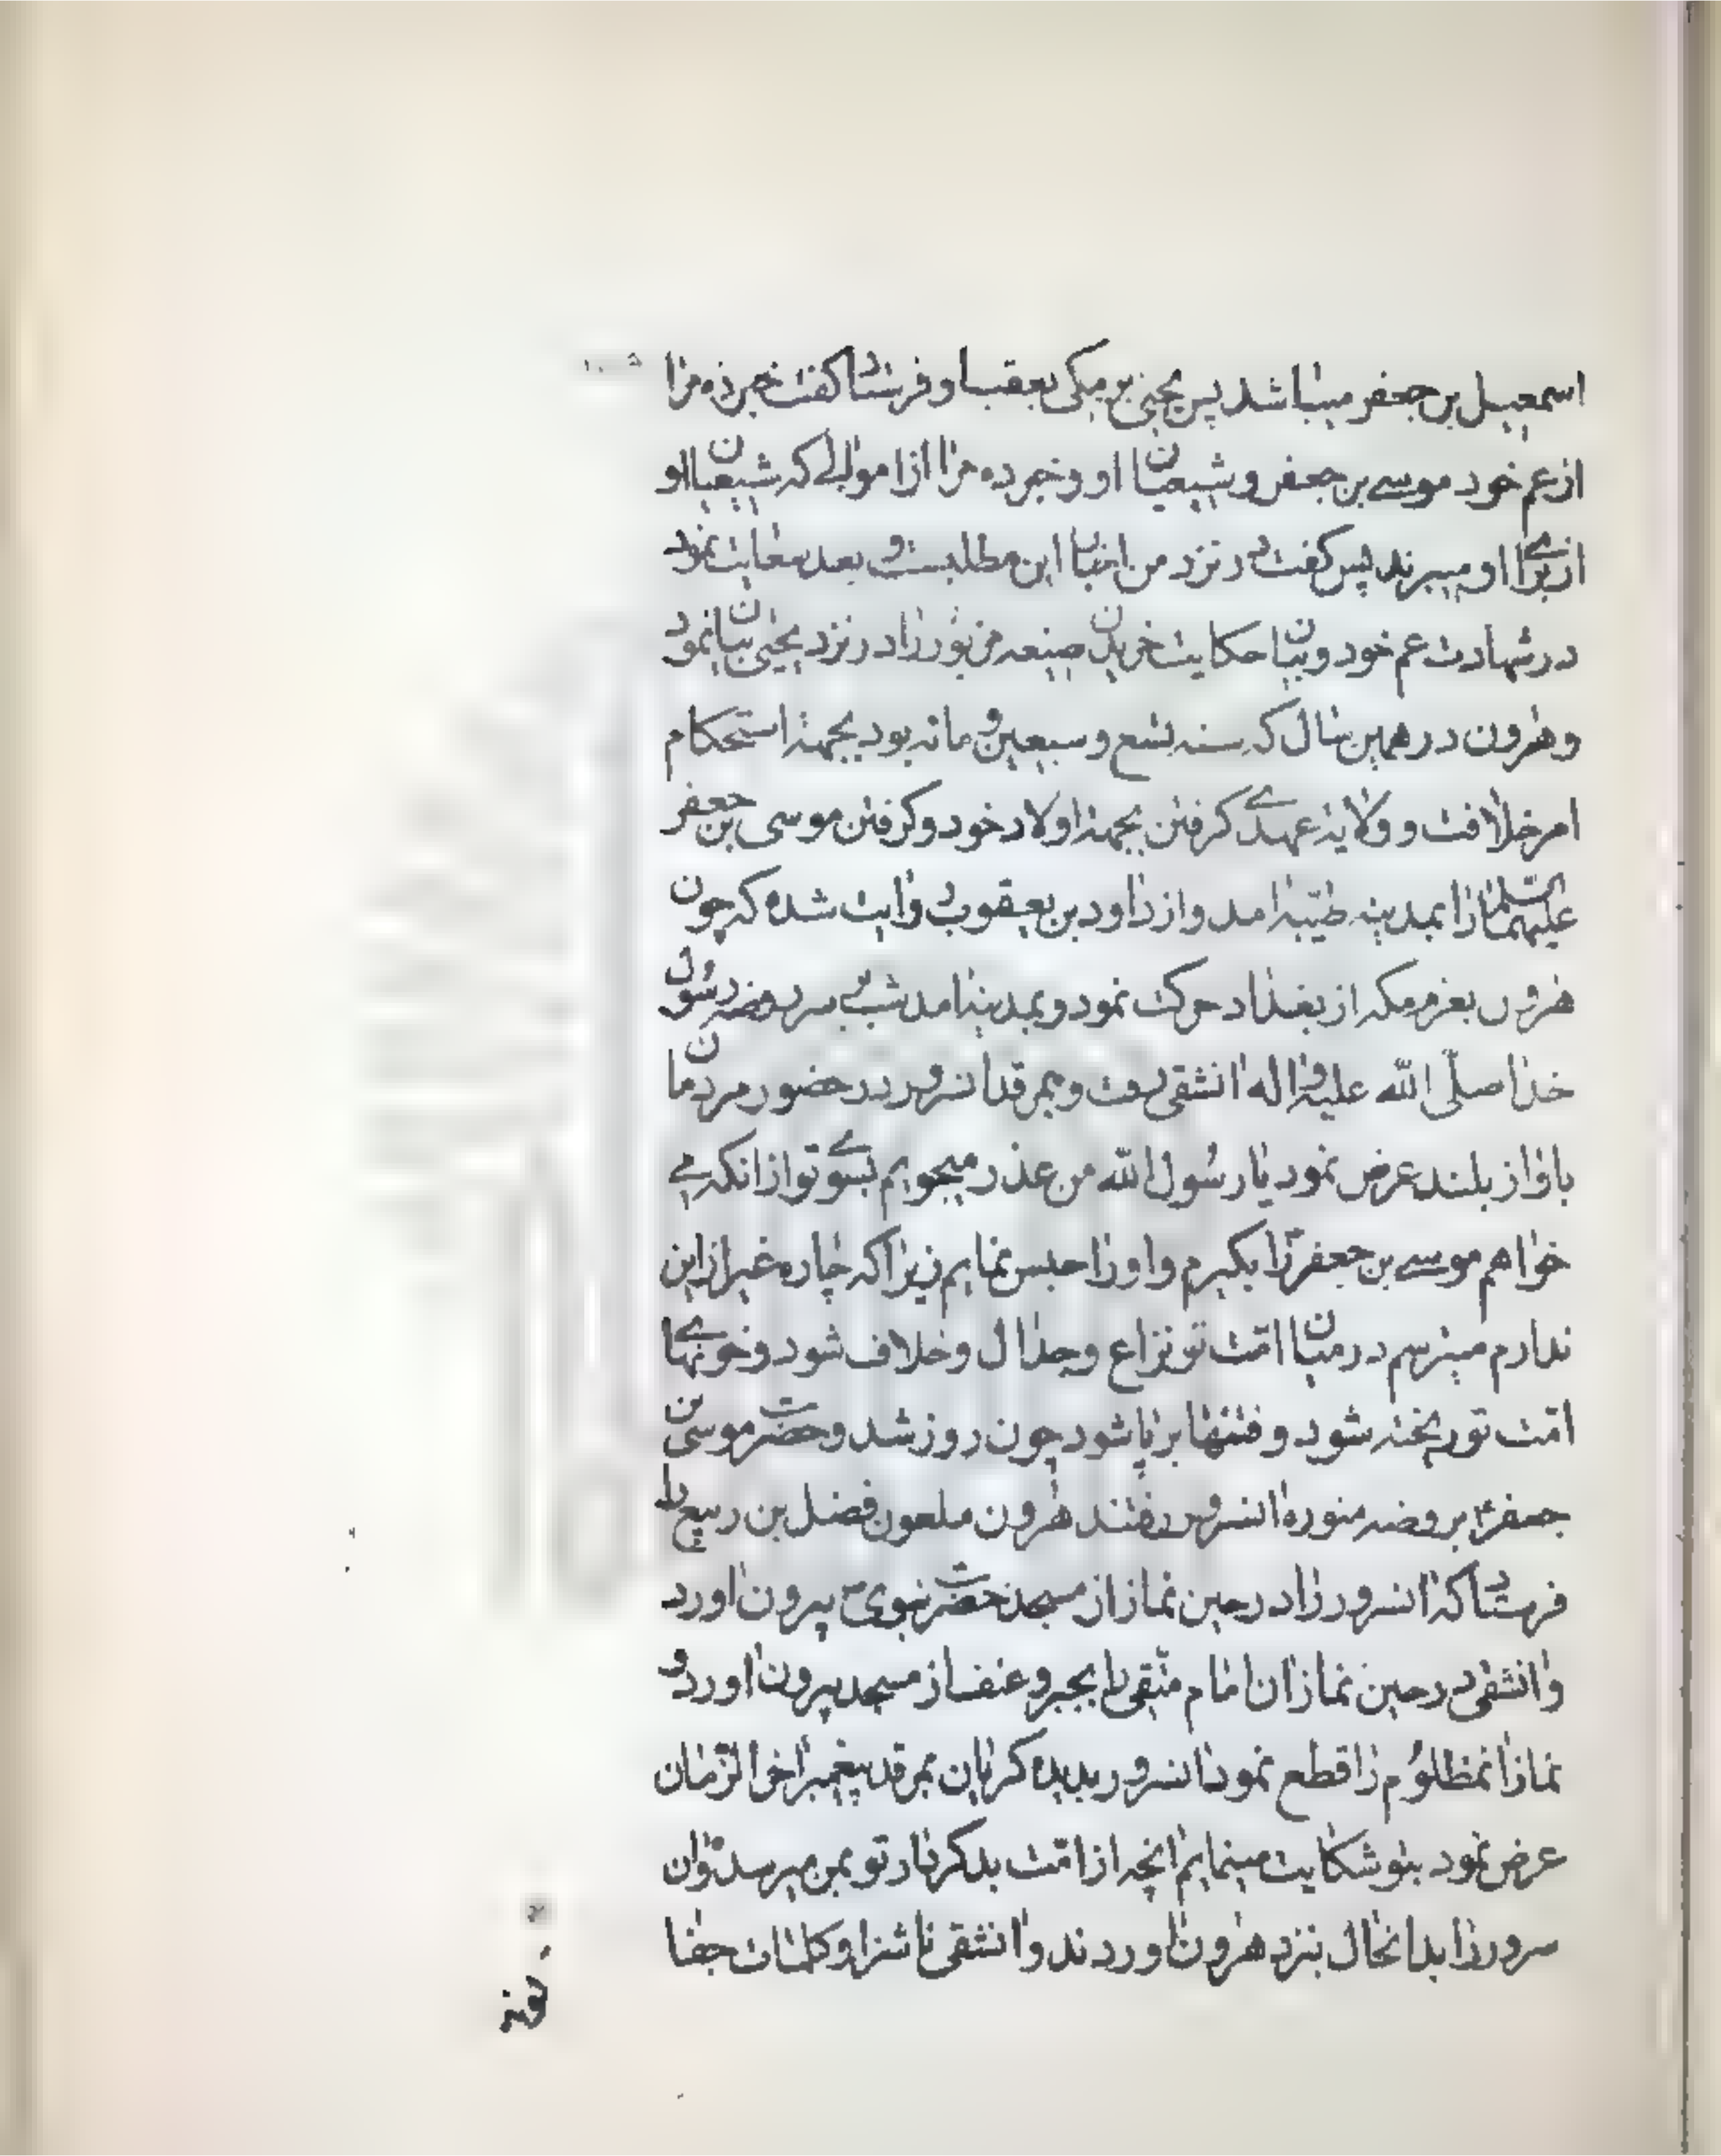 اسمعیل بن جعفر میباشد پس یحیی برمکی بعقب او فرستاد گفت خبر ده مرا
از عم خود موسی بن جعفر و شیعیان او و خبر ده مرا از اموالی که شیعیان او
از برای او میبرند پس گفت در نزد من اخبار این مطلب است و بعد معایت نمود
در شهادت عم خود و بیان حکایت خریدن ضیعه مزبور را در نزد یحیی بیان نمود
و هرون در همین سال که سنه تسع و سبعین و مائه بود بجهة استحکام
امر خلافت و ولایة عهدی گرفتن بجهة اولاد خود و گرفتن موسی بن جعفر
علیهما السلام را بمدینه طیّبه امد و از داود بن یعقوب روایت شده که چون
هرون بعزم مکه از بغداد حرکت نمود و بمدینه امد شب بر سر روضه رسول
خدا صلّی اللّه علیه و اله انشقی رفت و بمرقد انسرور در حضور مردمان
باواز بلند عرض نمود یا رسول اللّه من عذر میجویم بسوی تو از انکه می
خواهم موسی بن جعفر را بگیرم و او را حبس نمایم زیرا که چاره غیر از این
ندارم میترسم در میان امّت تو نزاع و جدال و خلاف شود و خونهای
امّت تو ریخته شود و فتنها برپا شود چون روز شد و حضرت موسی بن
جعفرؑ بروضه منوره انسرور رفتند هرون ملعون فضل بن ربیع را
فرستاد که انسرور را در حین نماز از مسجد حضرت نبوی ص بیرون اورد
و انشقی در حین نماز ان امام متّقی را بجبر و عنف از مسجد بیرون اورد و
نماز انمظلوم را قطع نمود انسرور بدیده گریان بمرقد پیغمبر اخر الزّمان
عرض نمود بتو شکایت مینمایم انچه از امّت بدکردار تو بمن میرسد و ان
سرور را بدانحال بنزد هرون اوردند و انشقی ناسزا و کلمات جفا